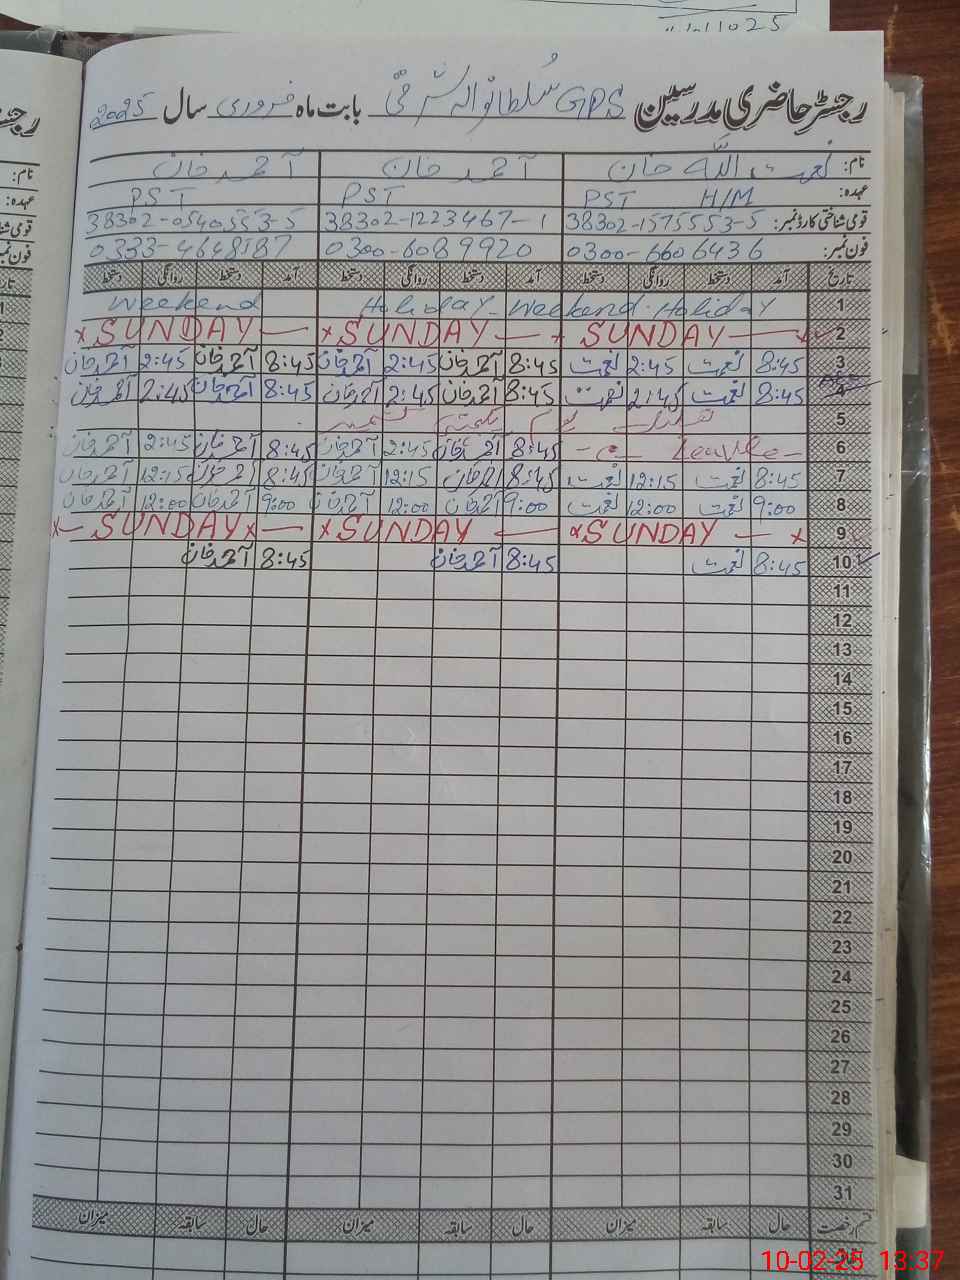 11025
رجسٹر حاضری مدرسین GPS سُلطانوالہ شرقی بابت ماہ فروری سال 2025
نام: نعمت اللہ خان آحمد خان آحمد خان
عہدہ: PST H/M PST PST
قومی شناختی کارڈ نمبر: 38302-1575553-5 38302-1223467-1 38302-0540553-5
فون نمبر: 0300-6606436 0300-6089920 0333-4648187
تاریخ آمد دستخط روانگی دستخط آمد دستخط روانگی دستخط آمد دستخط روانگی دستخط
1 Weekend Holiday - Weekend Holiday
2 SUNDAY SUNDAY SUNDAY
3 8:45 نعمت 2:45 نعمت 8:45 آحمد خان 2:45 آحمد خان 8:45 آحمد خان 2:45 آحمد خان
4 8:45 نعمت 2:45 نعمت 8:45 آحمد خان 2:45 آحمد خان 8:45 آحمد خان 2:45 آحمد خان
5 یوم کشمیر
6 Leave 8:45 آحمد خان 2:45 آحمد خان 8:45 آحمد خان 2:45 آحمد خان
7 8:45 نعمت 12:15 نعمت 8:45 آحمد خان 12:15 آحمد خان 8:45 آحمد خان 12:15 آحمد خان
8 9:00 نعمت 12:00 نعمت 9:00 آحمد خان 12:00 آحمد خان 9:00 آحمد خان 12:00 آحمد خان
9 SUNDAY SUNDAY SUNDAY
10 8:45 نعمت 8:45 آحمد خان 8:45 آحمد خان
11
12
13
14
15
16
17
18
19
20
21
22
23
24
25
26
27
28
29
30
31
قسم رخصت حال سابقہ میزان حال سابقہ میزان حال سابقہ میزان
10-02-25 13:37